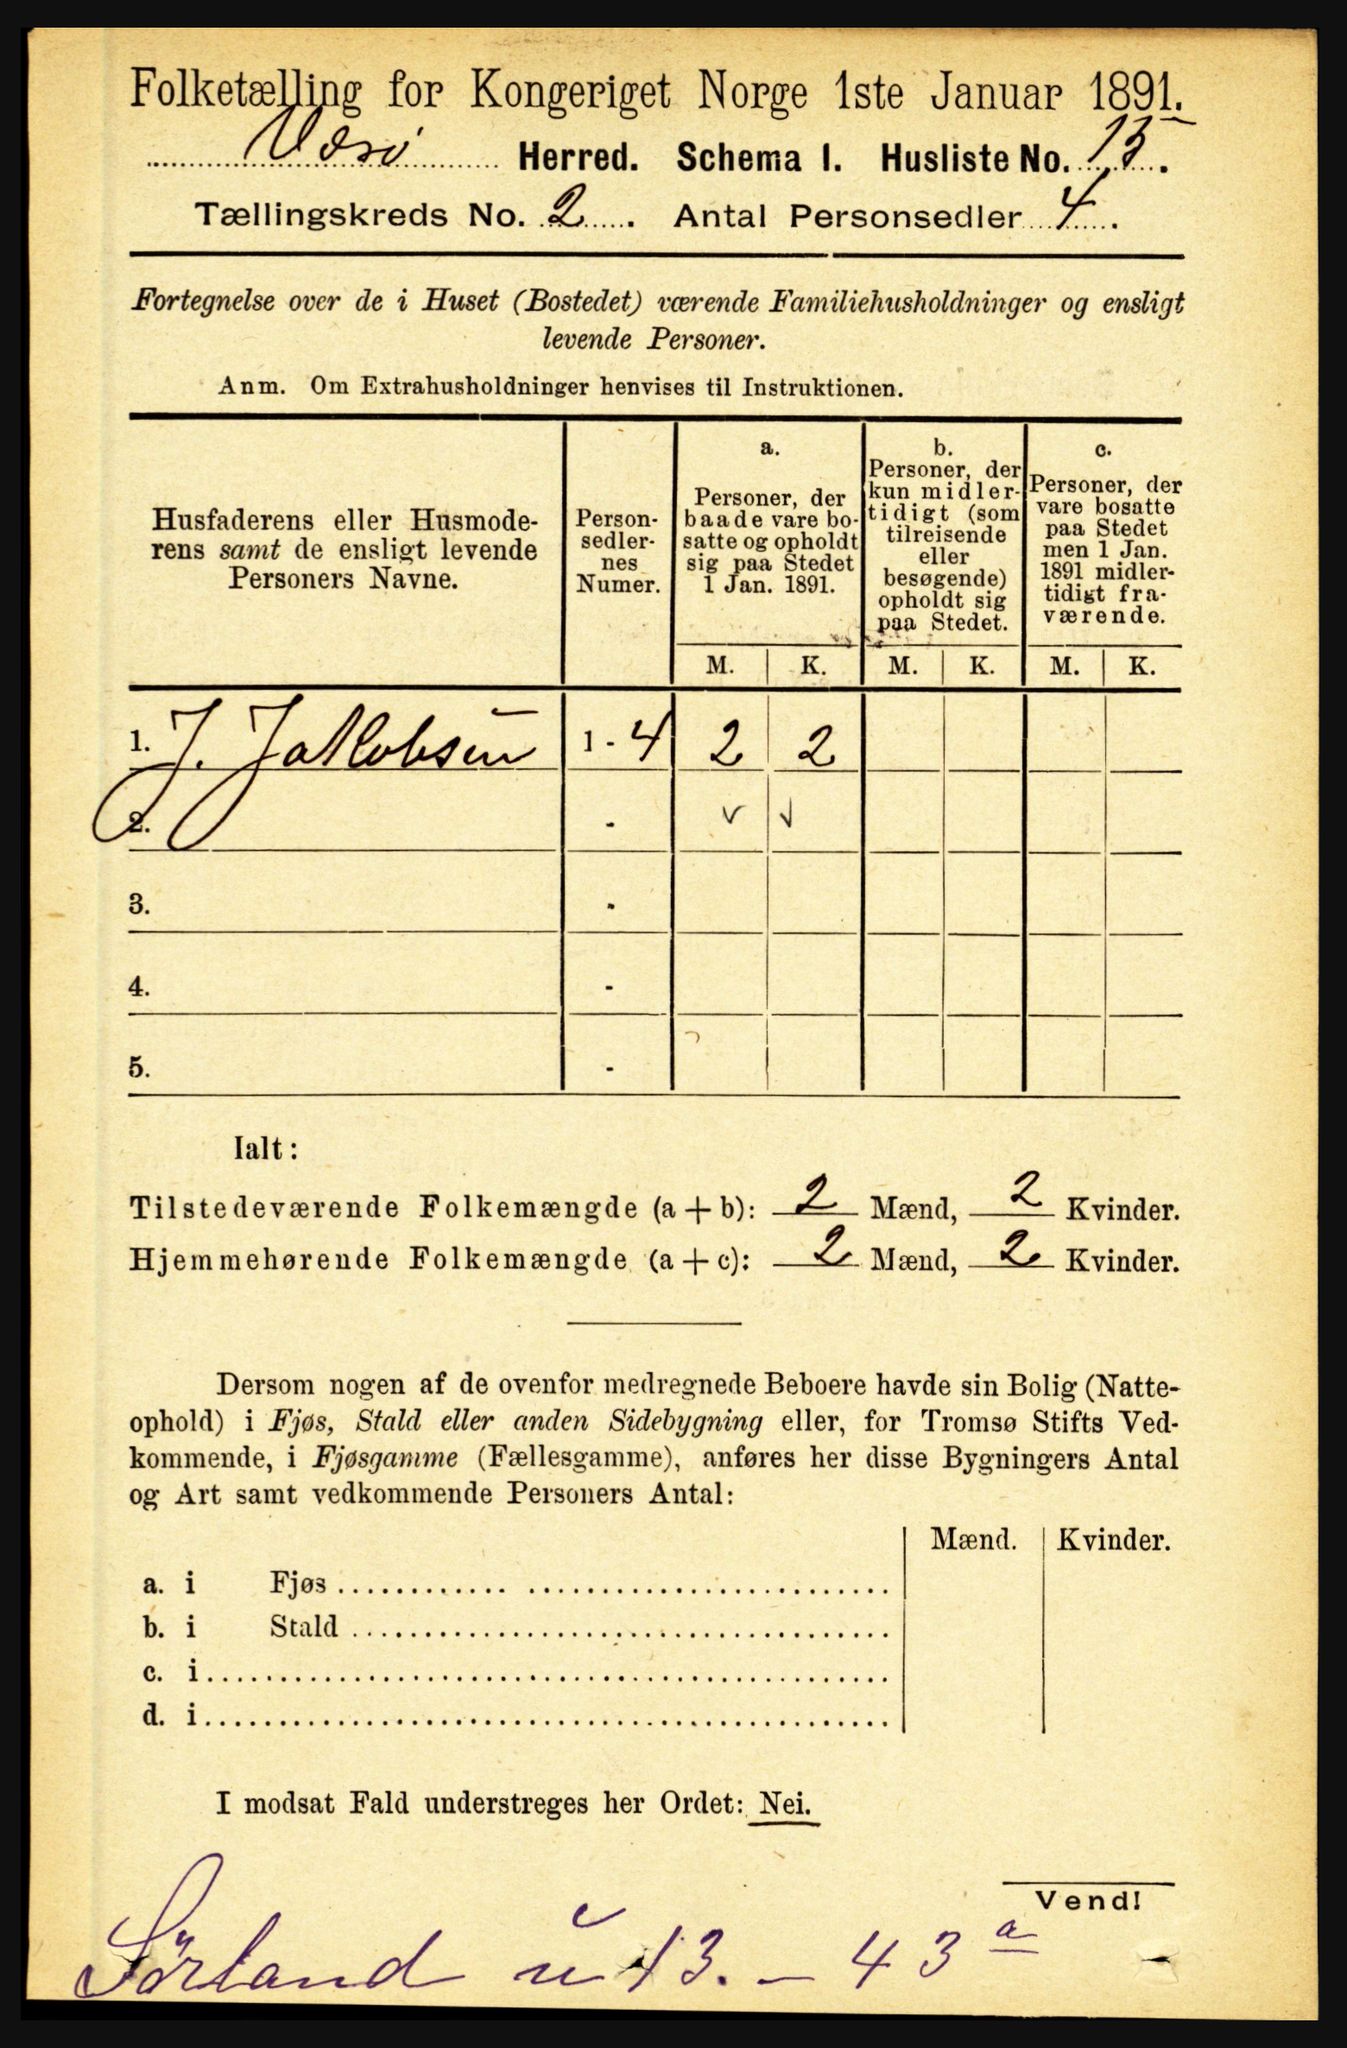 Folketælling for Kongeriget Norge 1ste Januar 1891.
Værø Herred. Schema I. Husliste No. 15.
Tællingskreds No. 2. Antal Personsedler 4.
Fortegnelse over de i Huset (Bostedet) værende Familiehusholdninger og ensligt
levende Personer.
Anm. Om Extrahusholdninger henvises til Instruktionen.
Husfaderens eller Husmode-
rens samt de ensligt levende
Personers Navne.
Person-
sedler-
nes
Numer.
a.
Personer, der
baade vare bo-
satte og opholdt
sig paa Stedet
1 Jan. 1891.
b.
Personer, der
kun midler-
tidigt (som
tilreisende
eller
besøgende)
opholdt sig
paa Stedet.
c.
Personer, der
vare bosatte
paa Stedet
men 1 Jan.
1891 midler-
tidigt fra-
værende.
M. K. M. K. M. K.
1. J. Jakobsen 1 - 4 2 2
2. - v v
3. -
4. -
5. -
Ialt:
Tilstedeværende Folkemængde (a + b): 2 Mænd, 2 Kvinder.
Hjemmehørende Folkemængde (a + c): 2 Mænd, 2 Kvinder.
Dersom nogen af de ovenfor medregnede Beboere havde sin Bolig (Natte-
ophold) i Fjøs, Stald eller anden Sidebygning eller, for Tromsø Stifts Ved-
kommende, i Fjøsgamme (Fællesgamme), anføres her disse Bygningers Antal
og Art samt vedkommende Personers Antal:
Mænd. Kvinder.
a. i Fjøs
b. i Stald
c. i
d. i
I modsat Fald understreges her Ordet: Nei.
Vend!
Sörland u 13. - 43 a